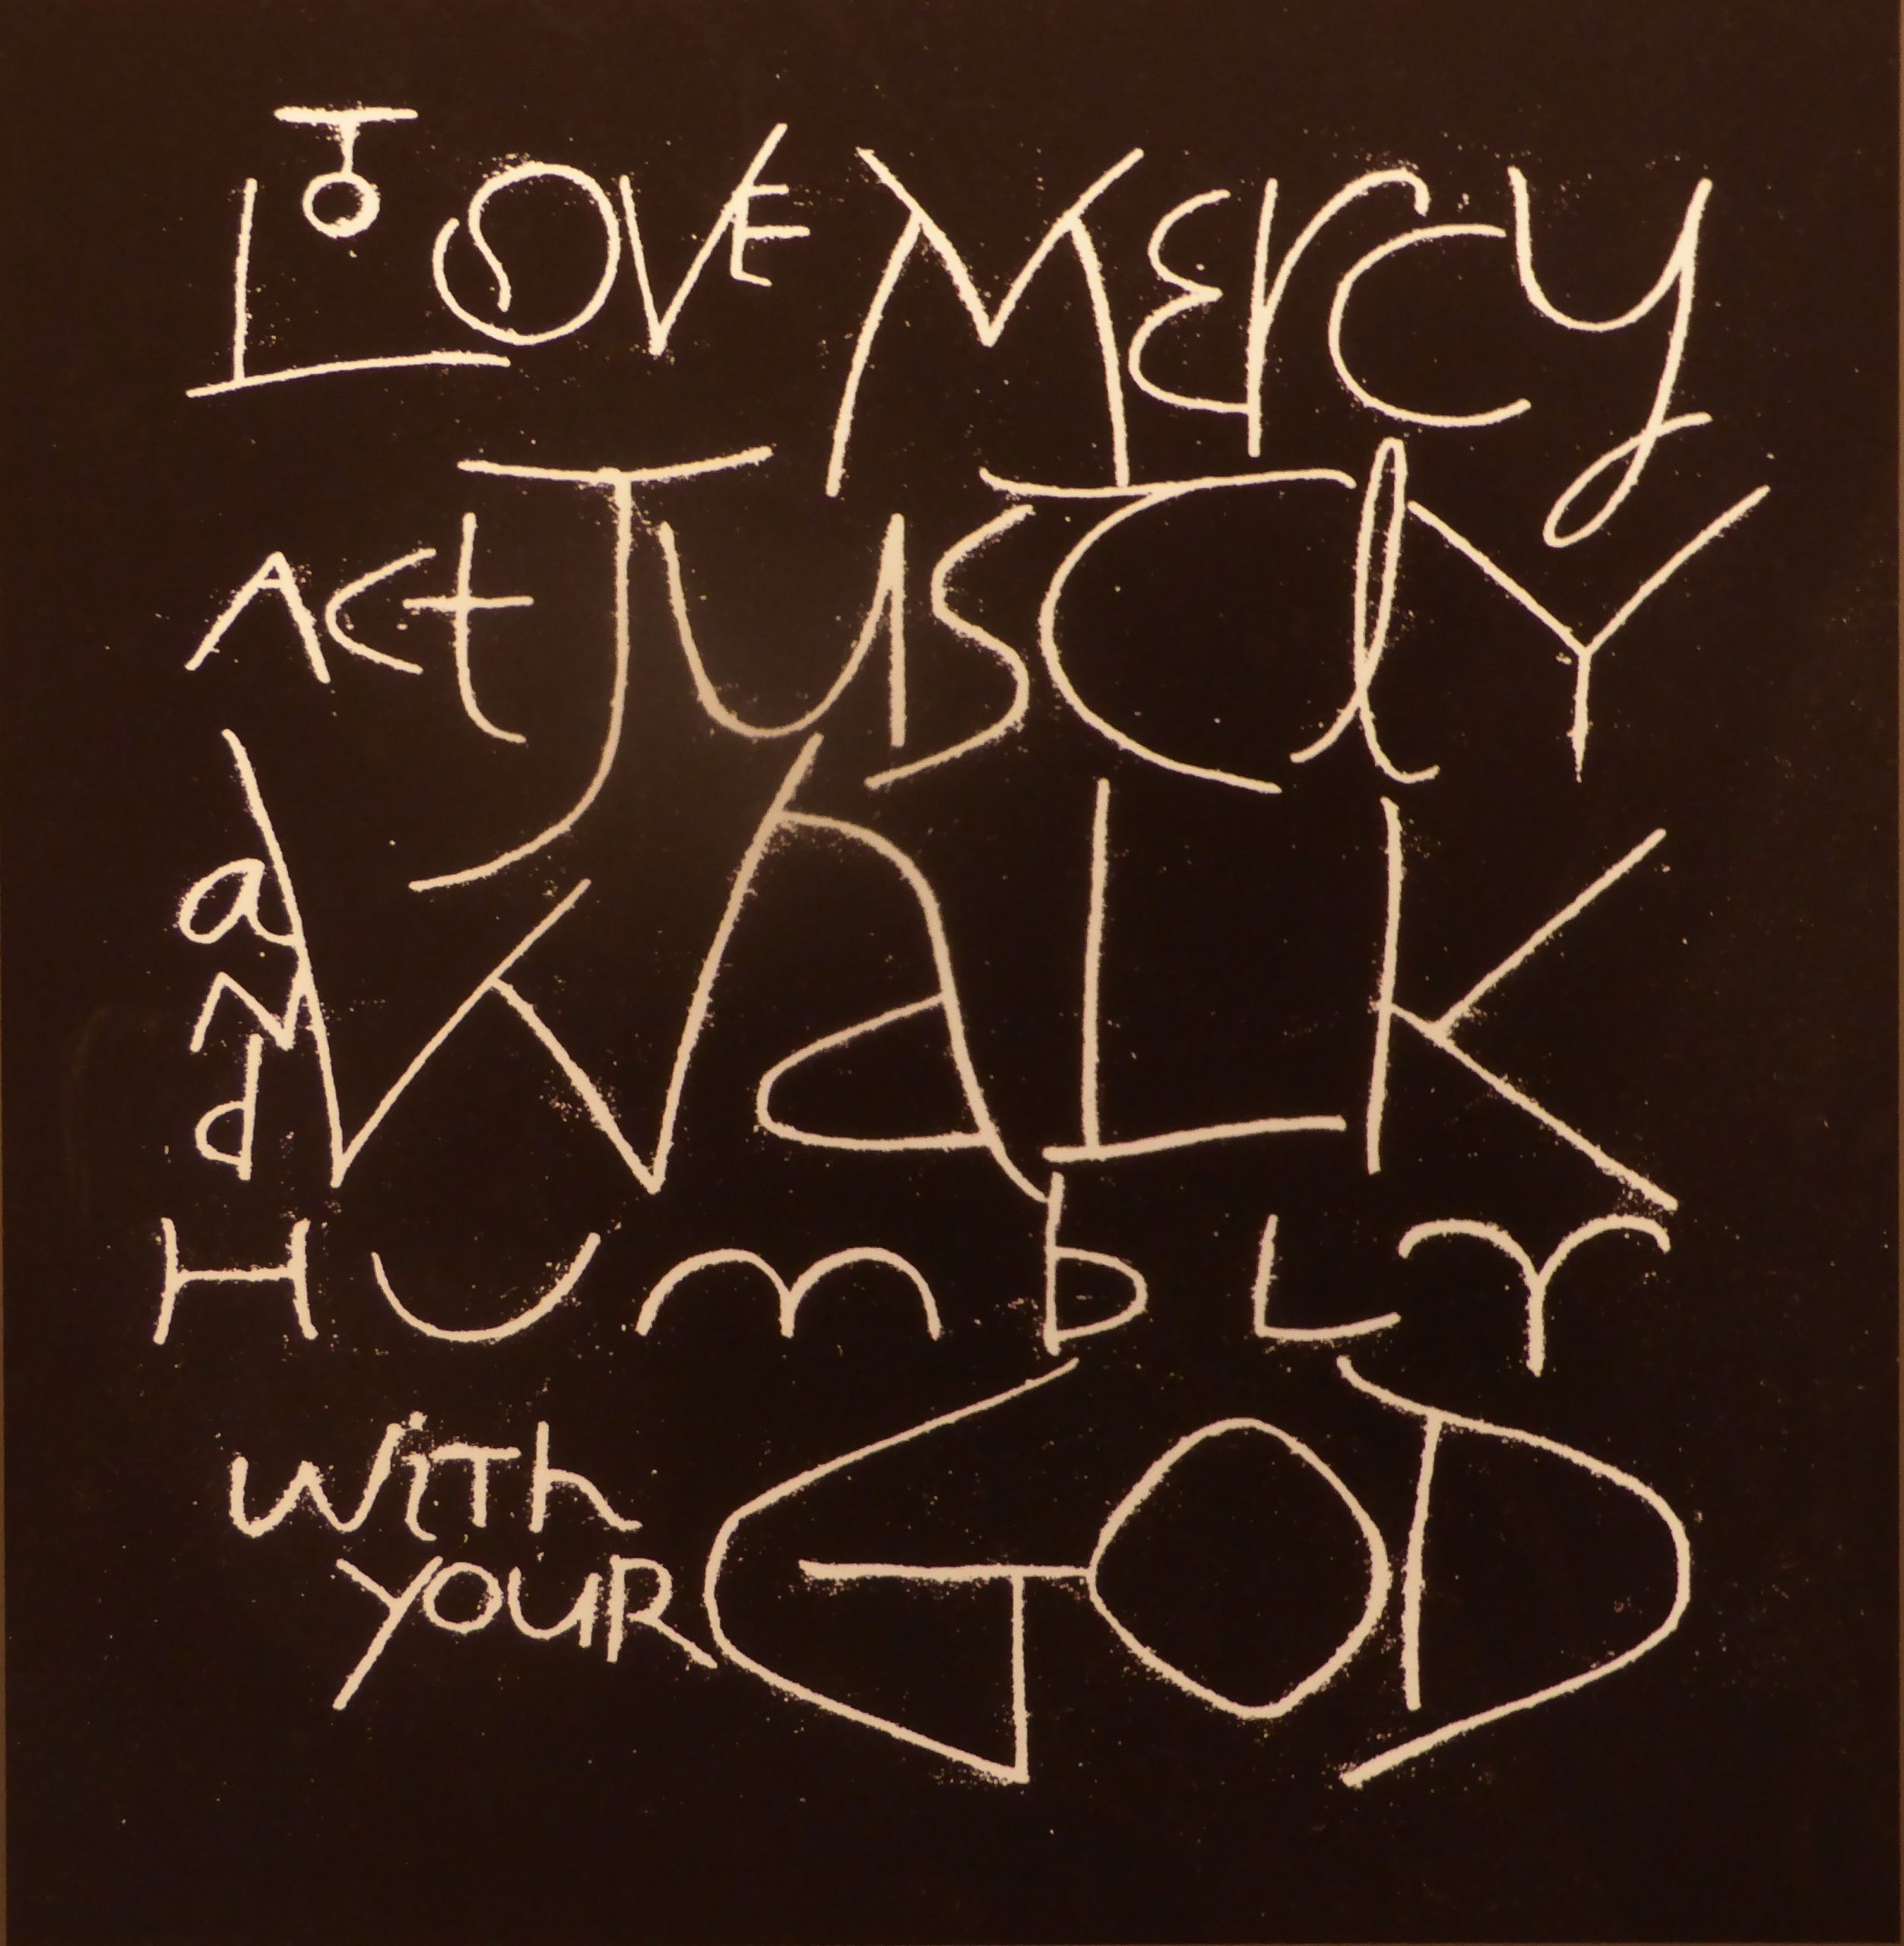 To LOVE MErcy
Act JUsTlY
aNd WaLK
HUmbLY
WiTh
YOUR GOD